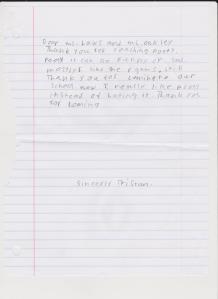 Dear ms. Laws and ms. oakley
Thank you for teaching poets.
Poetry it can be Fiction or
mostly has the rhyms, still
Thank you for coming to our
school now I really like poems
instead of hating it. Thank you
for coming
Sincerly Tristan.